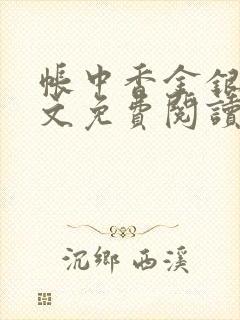 帳中香金銀
文免費閱讀
沉鄉 西溪